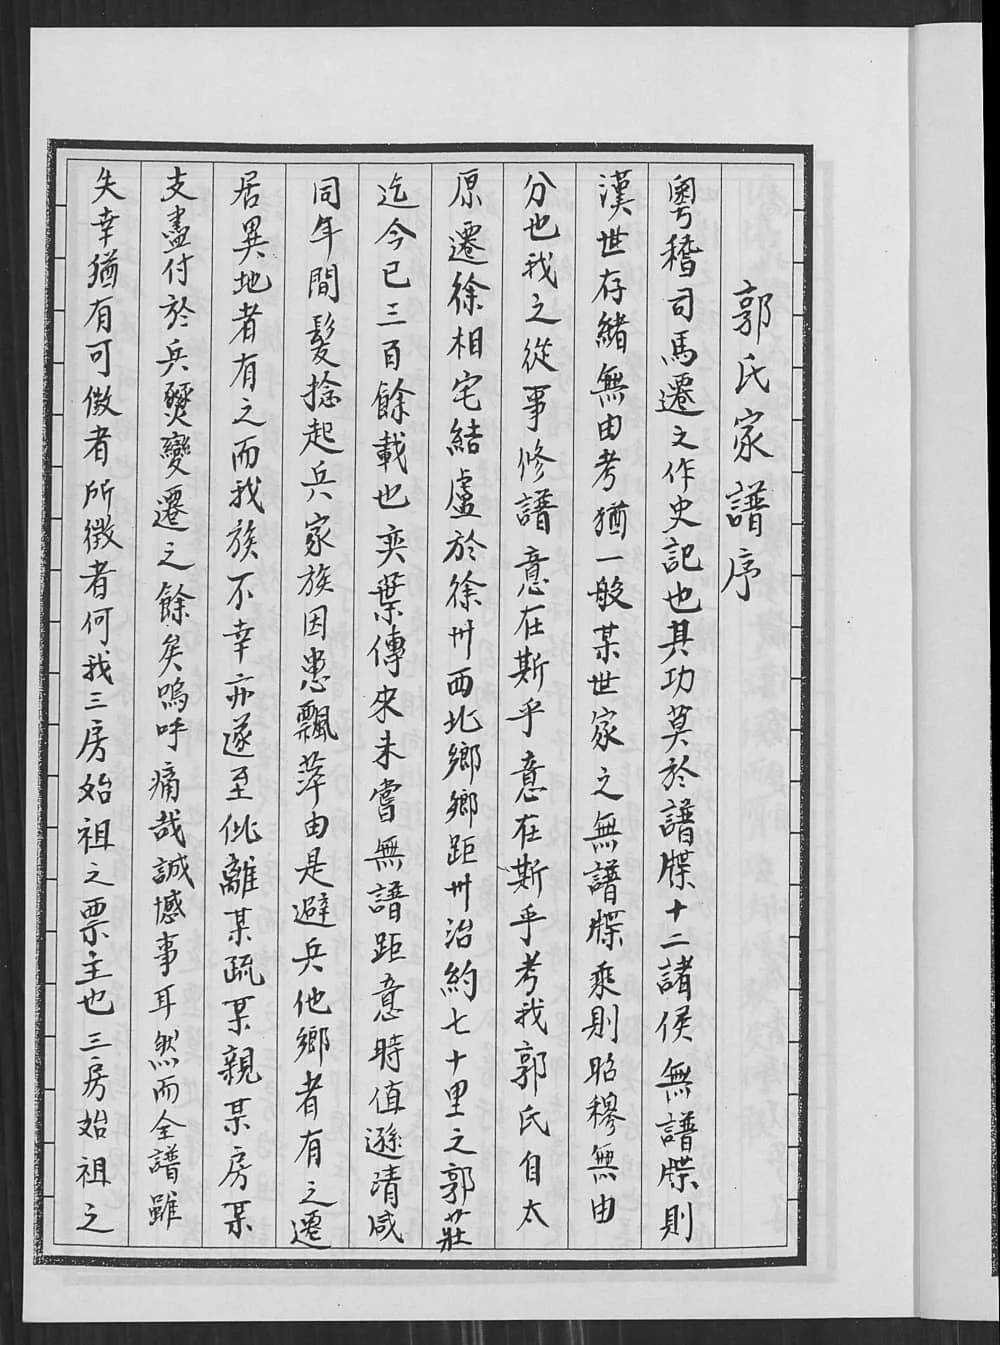 郭氏家譜序
粵稽司馬遷之作史記也其功莫於譜牒十二諸侯無譜牒則
漢世存緒無由考猶一般某世家之無譜牒乘則昭穆無由
分也我之從事修譜意在斯乎意在斯乎考我郭氏自太
原遷徐相宅結盧於徐州西北鄉鄉距州治約七十里之郭莊
迄今已三百餘載也奕葉傳來未嘗無譜距意時值遜清咸
同年間髮捻起兵家族因患飄萍由是避兵他鄉者有之遷
居異地者有之而我族不幸亦遂至仳離某疏某親某房某
支盡付於兵燹變遷之餘矣嗚呼痛哉誠憾事耳然而全譜雖
失幸猶有可徵者所徵者何我三房始祖之票主也三房始祖之